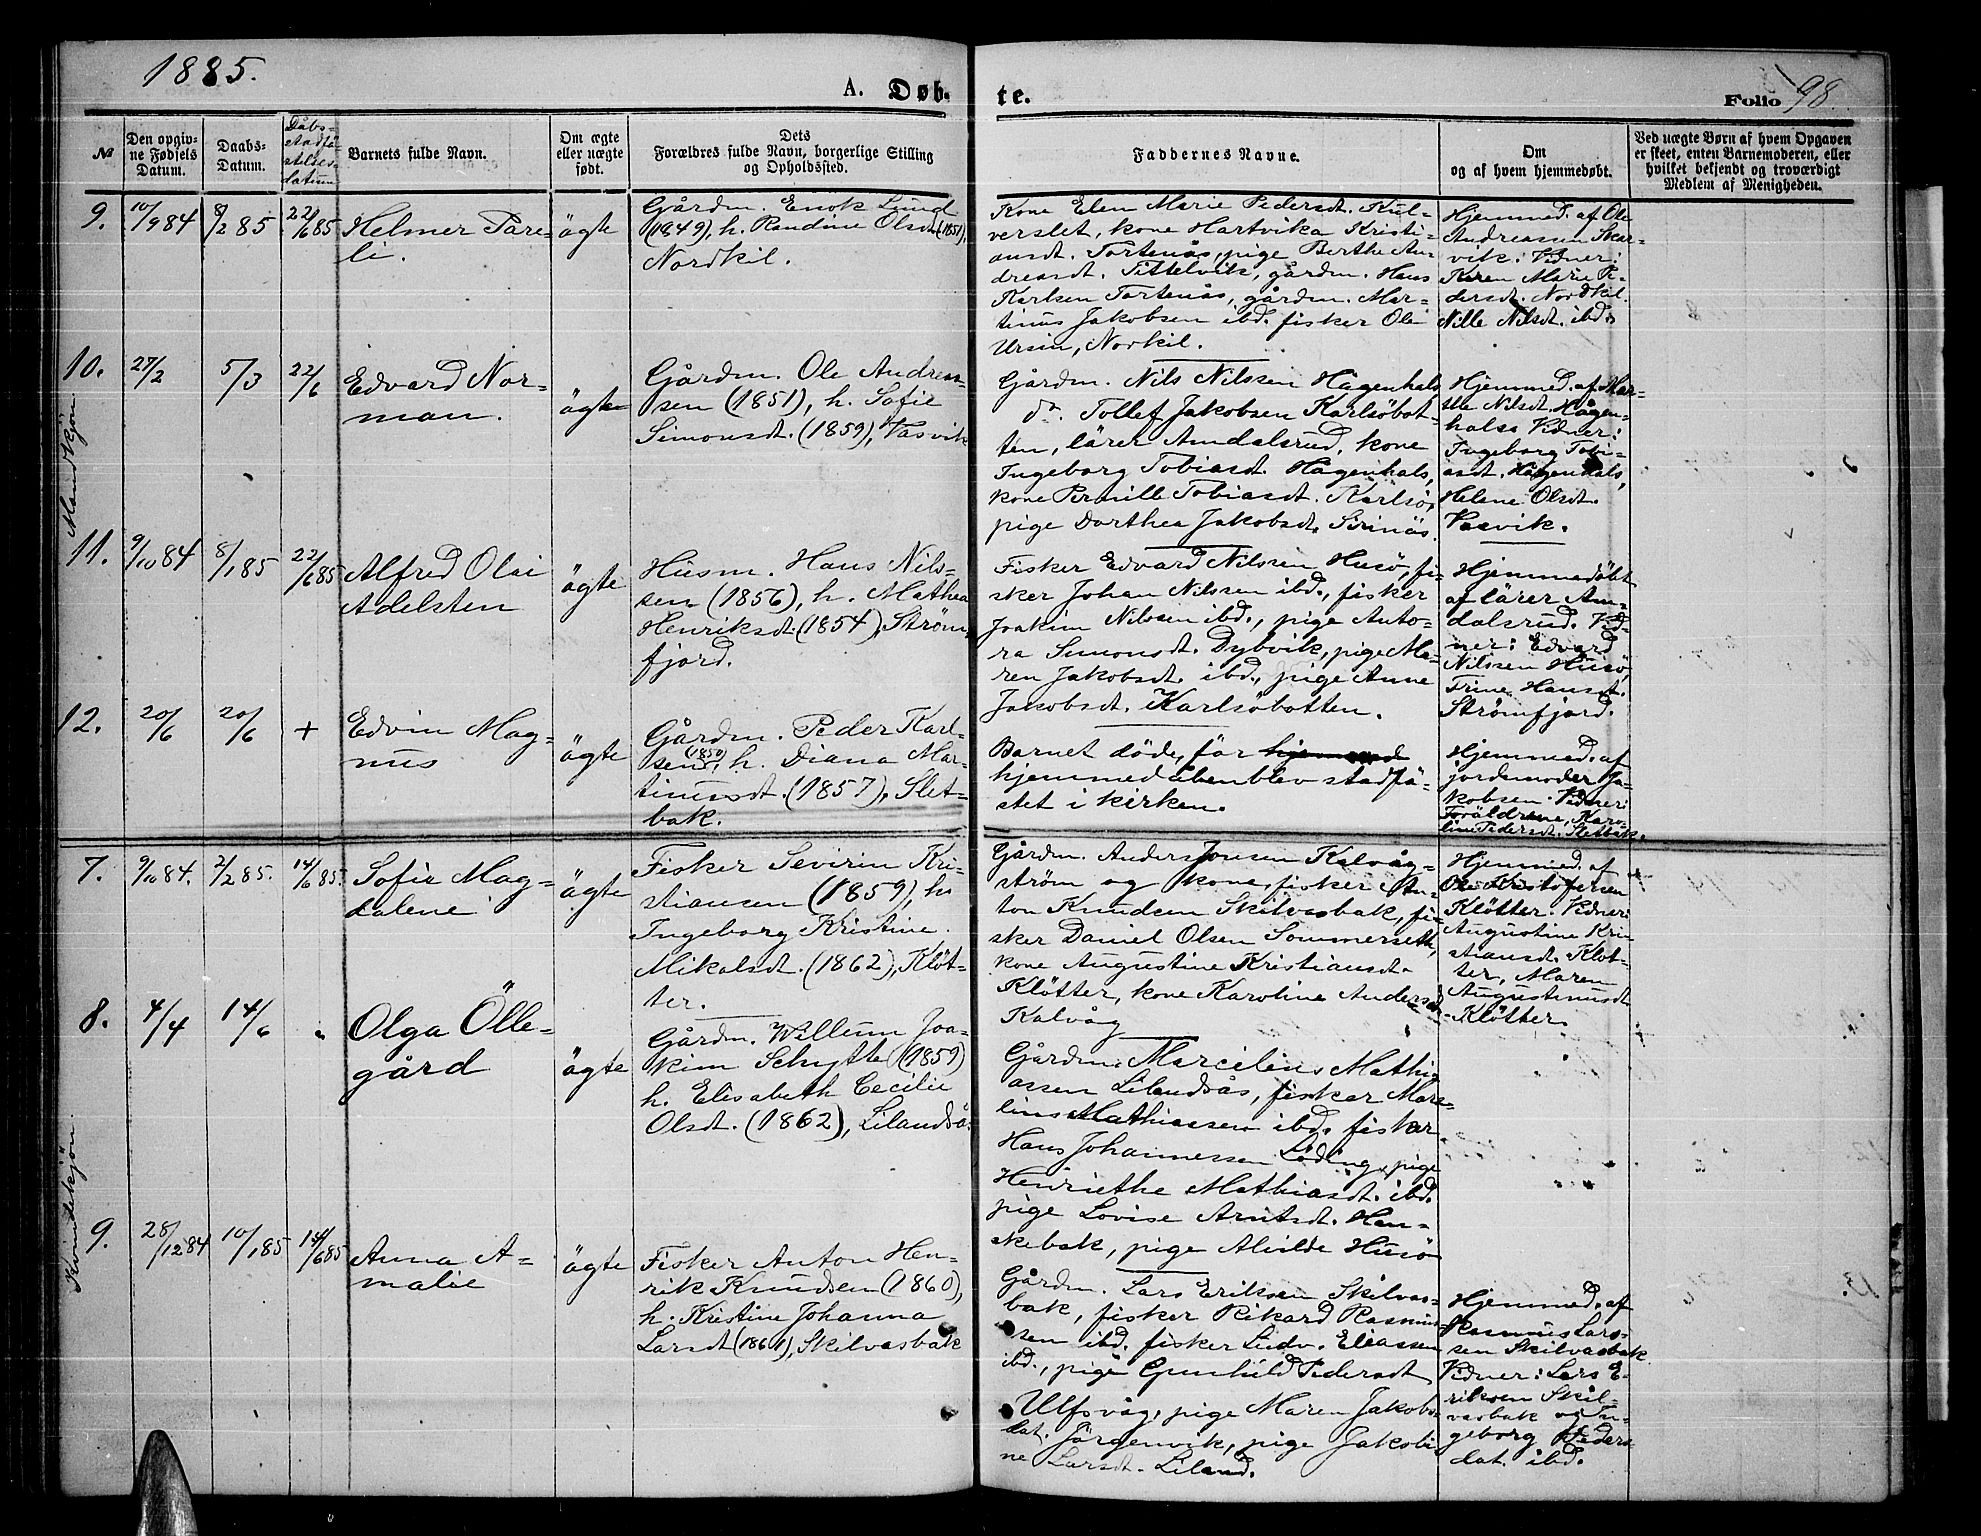 1885.
A. Døb-
te.
Folio 98.
№
Den opgiv-
ne Fødsels
Datum.
Daabs-
Datum.
Dåbs-
stadfä-
stelses-
datum
Barnets fulde Navn.
Om ægte
eller uægte
født.
Dets
Forældres fulde Navn, borgerlige Stilling
og Opholdssted.
Faddernes Navne.
Om
og af hvem hjemmedøbt.
Ved uægte Børn af hvem Opgaven
er skeet, enten Barnemoderen, eller
hvilket bekjendt og troværdigt
Medlem af Menigheden.
Mandkjøn
9.
10/9 84
8/2 85
22/6 85
Helmer Pare-
li.
ägte
Gårdm. Enok Ljungl
(1849), h. Randine Olsdt. (1851),
Nordkil.
Kone Elen Marie Pedersdt. Kul-
verslet, kone Hartvika Kristi-
ansdt. Tortenås, pige Berthe An-
dreasdt. Tittelvik, gårdm. Hans
Karlsen Tortenås, gårdm. Mar-
tinus Jakobsen ibd. fisker Ole
Ursin, Norkil.
Hjemmed. af Ole
Andreassen Skar-
vik. Vidner:
Karen Marie Pe-
dersdt. Nordkil.
Nille Nilsdt. ibd.
10.
27/2
5/3
22/6
Edvard Nor-
man.
ägte
Gårdm. Ole Andrea-
sen (1851), h. Sofie
Simonsdt. (1859), Vasvik
Gårdm. Nils Nilssen Hågenhals
do. Tollef Jakobsen Karlsöbot-
ten, lärer Amdalsrud, kone
Ingeborg Tobiasdt. Hågenhals,
kone Pernille Tobiasdt. Karlsö,
pige Dorthea Jakobsdt. Svinäs.
Hjemmed. af Mar-
the Nilsdt. Hågen-
hals. Vidner:
Ingeborg Tobi-
asdt. Hågenhals,
Helene Olsdt.
Vasvik.
11.
9/10 84
8/1 85
22/6 85
Alfred Olai
Adelsten
ägte
Husm. Hans Nils-
sen (1856), h. Mathea
Henriksdt. (1854), Ström-
fjord.
Fisker Edvard Nilssen Husö, fi-
sker Johan Nilssen ibd., fisker
Joakim Nilssen ibd., pige Anto-
ra Simonsdt. Dybvik, pige Ma-
ren Jakobsdt. ibd., pige Anne
Jakobsdt. Karlsöbotten.
Hjemmedöbt
af lärer Am-
dalsrud. Vid-
ner: Edvard
Nilssen Husö,
Trine Hansdt.
Strömfjord.
12.
20/6
20/6
+
Edvin Mag-
nus
ägte
Gårdm. Peder Karl-
sen (1850), h. Diana Mar-
tinusdt. (1857), Slet-
bak.
Barnet döde, för hjemmed
hjemmedåben blev stadfä-
stet i kirken.
Hjemmed. af
jordemoder Ja-
kobsen. Vidner:
Foräldrene, Karo-
line Pedersdt. Sletbak.
Kvindekjön
7.
9/10 84.
2/2 85.
14/6 85.
Sofie Mag-
dalene
ägte
Fisker Sevirin Kri-
stiansen (1859), h.
Ingeborg Kristine
Mikalsdt. (1862), Klöt-
ter.
Gårdm. Anders Jonsen Kalvåg-
ström og kone, fisker An-
ton Knudsen Skilvasbak, fi-
sker Daniel Olsen Sommerseth,
kone Augustine Kristiansdt.
Klötter, kone Karoline Andersdt.
Kalvåg
Hjemmed. af
Ole Kristofersen
Klötter. Vidner:
Augustine Kri-
stiansdt. Klöt-
ter, Maren
Augustinusdt.
Klötter.
8.
4/4
14/6
"
Olga Ölle-
gård
ägte
Gårdm. Willum Joa-
kim Schytte (1859)
h. Elisabeth Cecilie
Olsdt. (1862), Lilandså.
Gårdm. Marcelius Mathi-
assen Lilandsås, fisker Mar-
lius Mathiassen ibd. fisker
Hans Johannessen Löding, pige
Henriethe Mathiasdt. ibd.
pige Lovise Arntsdt. Hen-
skebak, pige Alvilde Husö
9.
28/12 84
10/1 85
14/6 85
Anna A-
malie
ägte
Fisker Anton Hen-
rik Knudsen (1860),
h. Kristine Johanna
Larsdt (1861), Skilvasbak
Gårdm. Lars Eriksen Skilvas-
bak, fisker Rikard Rasmus-
sen ibd. fisker Ludv. Eliassen
ibd., pige Gunhild Pedersdt.
Ulfsvåg, pige Maren Jakobs-
dat. Jörgenvik, pige Jakobi-
ne Larsdt. Liland.
Hjemmed. af
Rasmus Lars-
sen Skilvasbak
Vidner: Lars E-
riksen Skil-
vasbak og In-
geborg Peders-
dat. ibd.